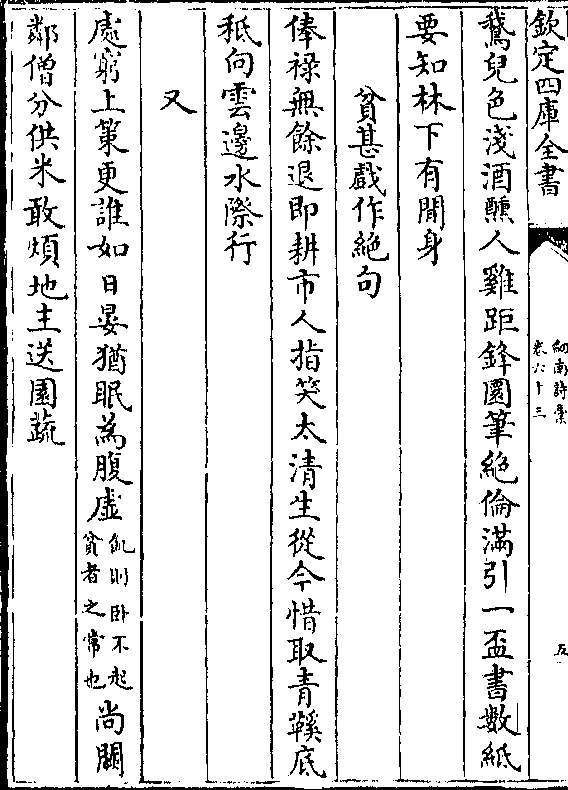 欽定四庫全書
劍南詩藁
卷六十三
五
鵞兒色淺酒醺人雞距鋒圓筆絶倫滿引一盃書數紙
要知林下有閒身
貧甚戲作絶句
俸祿無餘退即耕市人指笑太清生從今惜取青鞵底
秪向雲邊水際行
又
處窮上策更誰如日晏猶眠為腹虛飢則卧不起貧者之常也尚闕
鄰僧分供米敢煩地主送園蔬